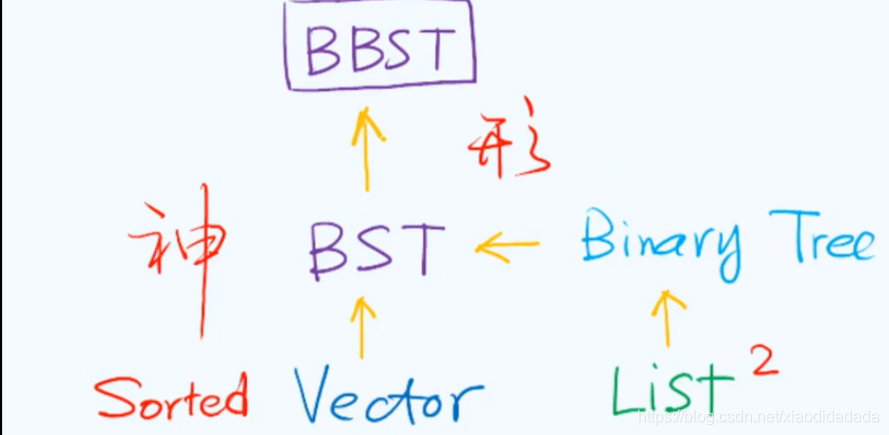 BBST
形
神
BST
Binary Tree
Sorted Vector
List²
https://blog.csdn.net/xiaodidadada